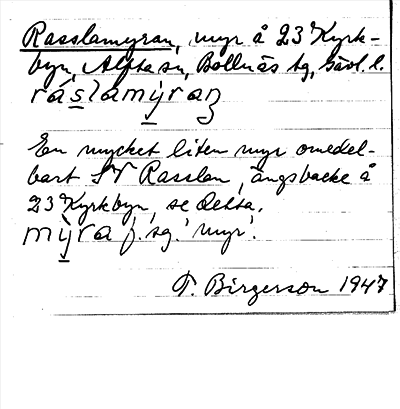 Rasslamyran, myr å 23 Kyrk-
byn, Alfta sn, Bollnäs tg, Gävl. l.
råslamỳraɳ
En mycket liten myr omedel-
bart SV Rasslan, ängsbacke å
23 Kyrkbyn, se detta.
mỳra f. sg. 'myr'.
T. Birgerson 1947